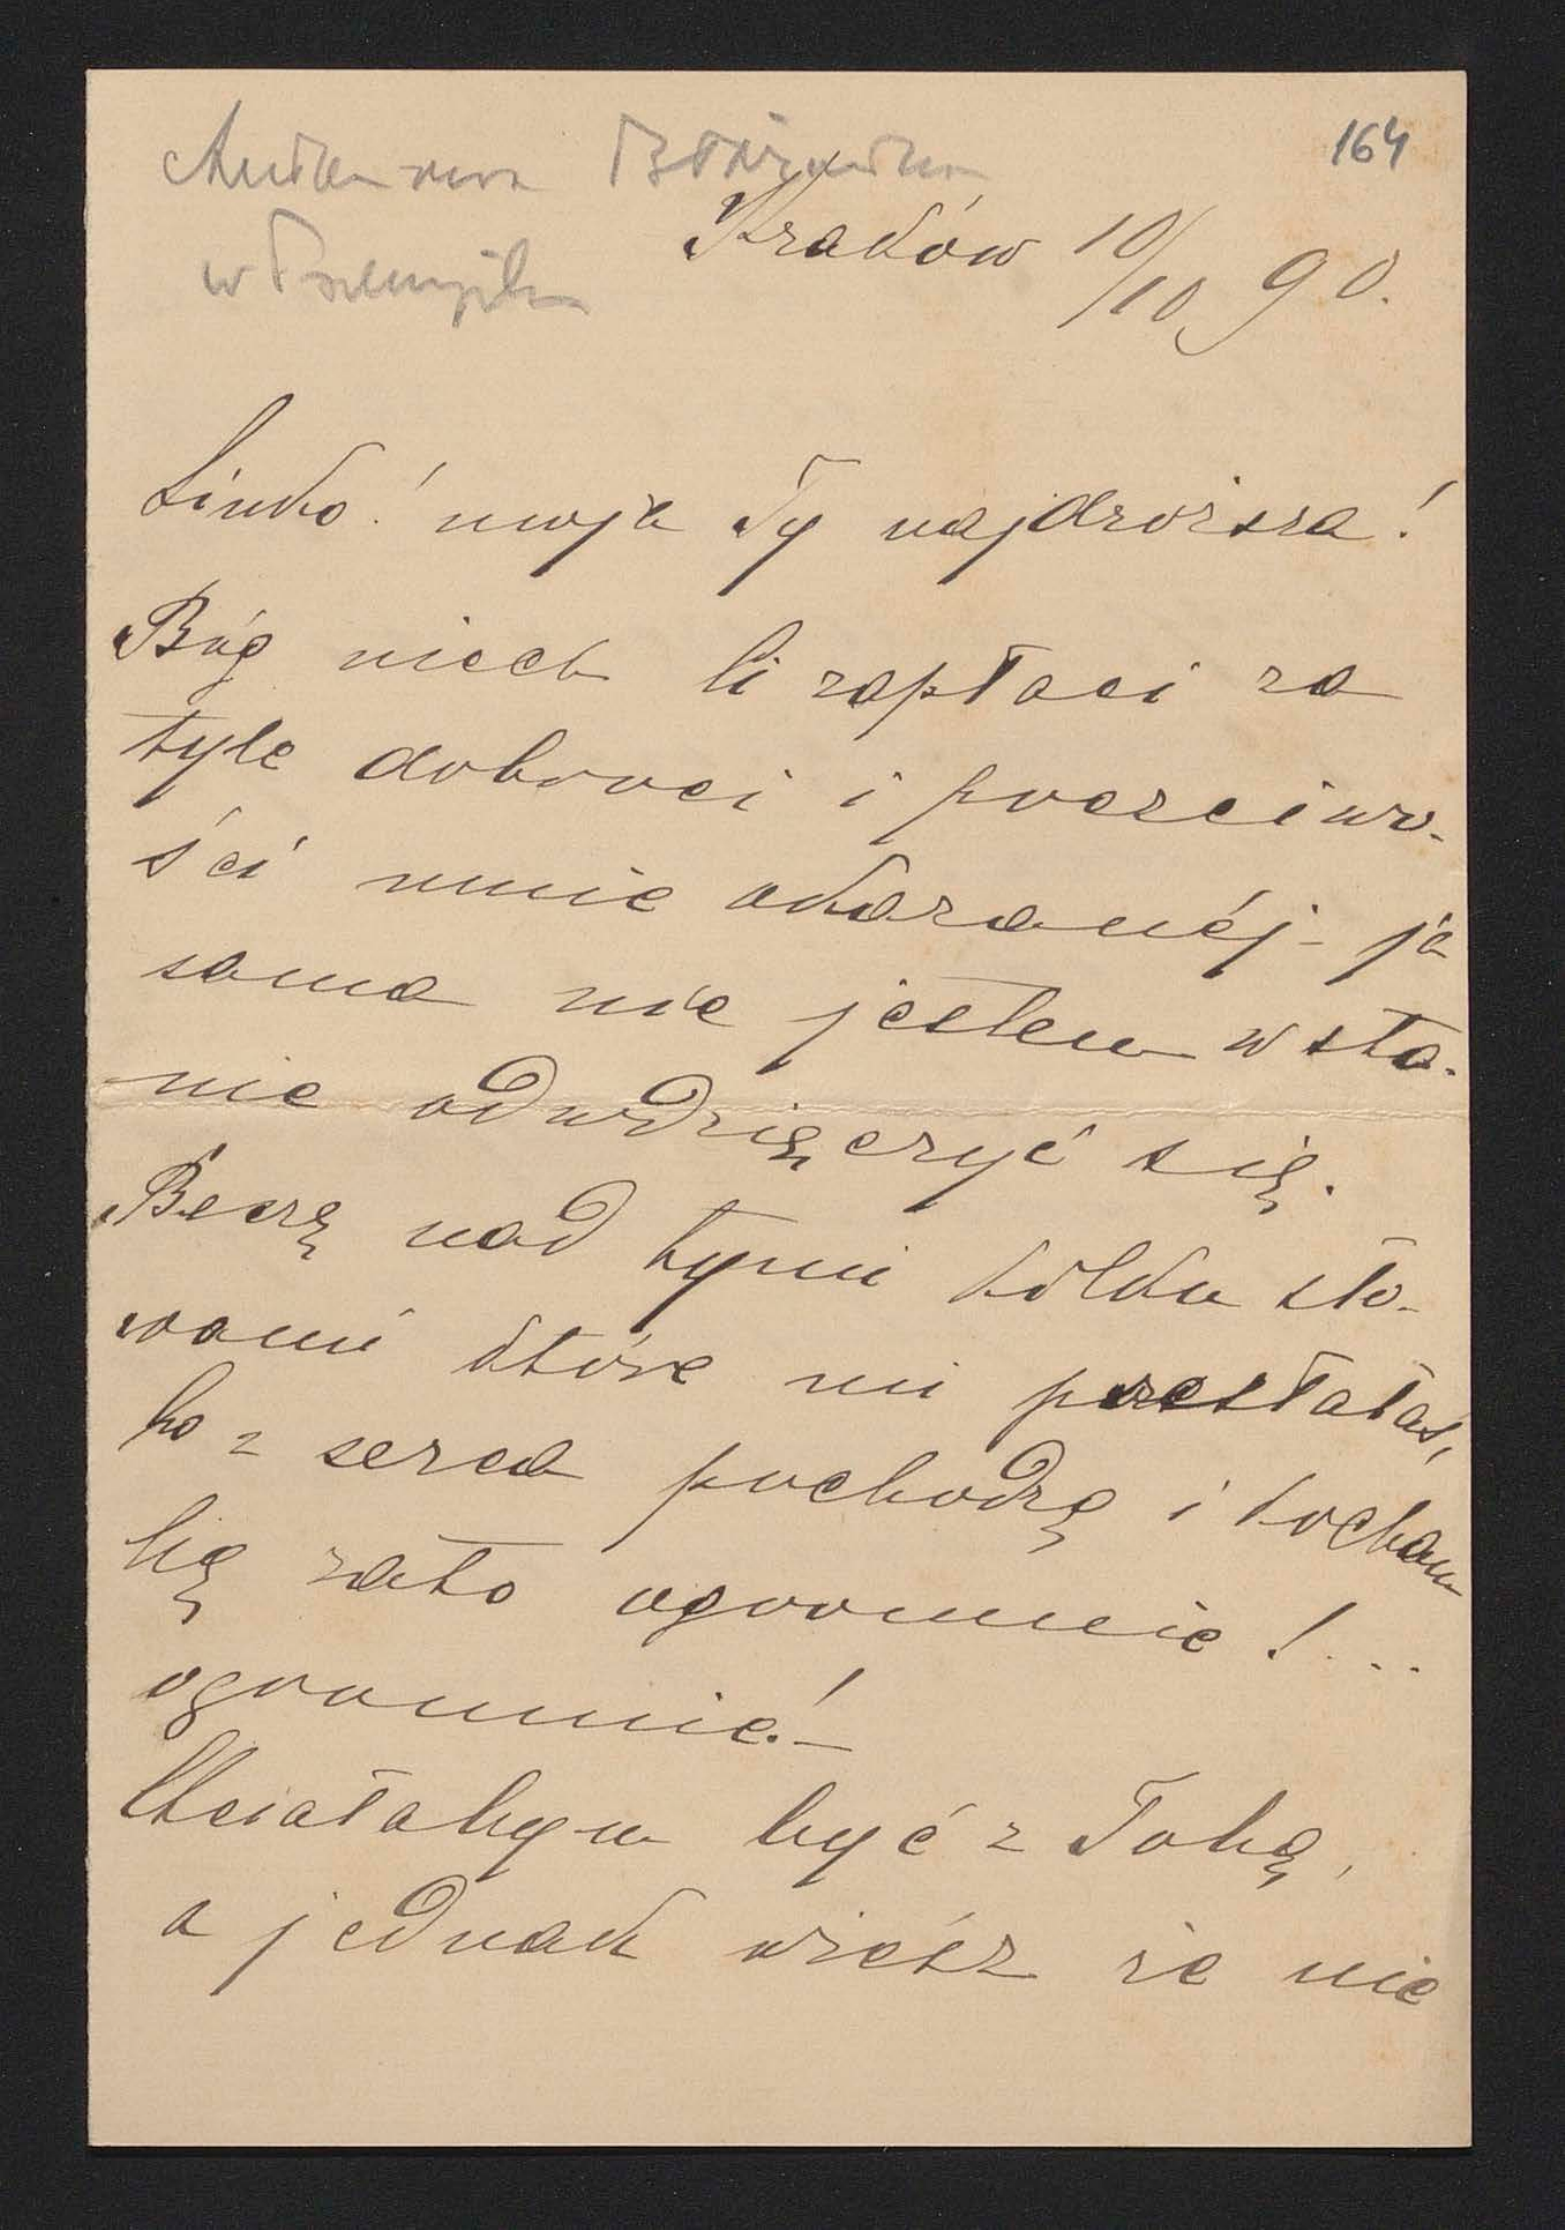 164
w Przemyślu
Kraków 10/10 90.
Linko! moja Ty najdroższa!
Bóg niech Ci zapłaci za
tyle dobroci i poczciwo-
ści mnie okazanéj - ja
sama nie jestem w sta-
nie odwdzięczyć się.
Beczę nad tymi kilku sło-
wami które mi przesłałaś,
bo z serca pochodzą i kocham
Cię zato ogromnie! ...
ogromnie! -
Chciałabym być z Tobą,
a jednak wiész że nie